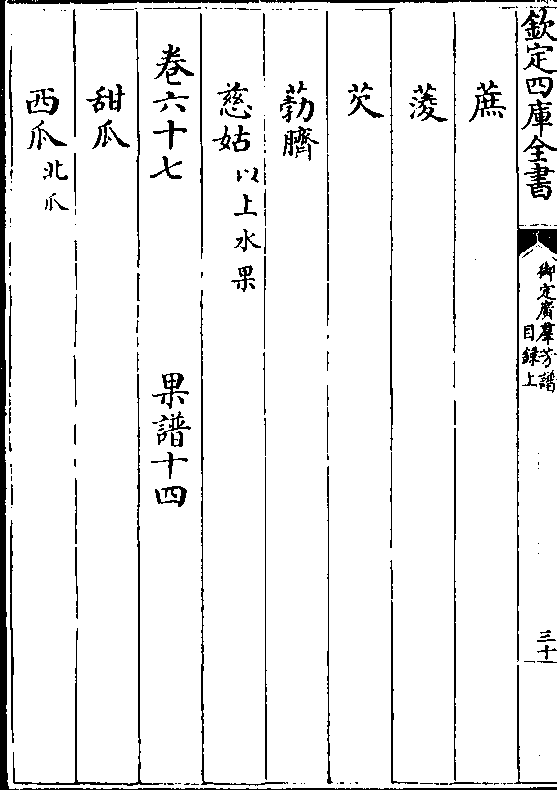 欽定四庫全書
御定廣羣芳譜
目錄上
三十
蔗
菱
芡
葧臍
慈姑 以上水果
卷六十七 果譜十四
甜瓜
西瓜 北瓜